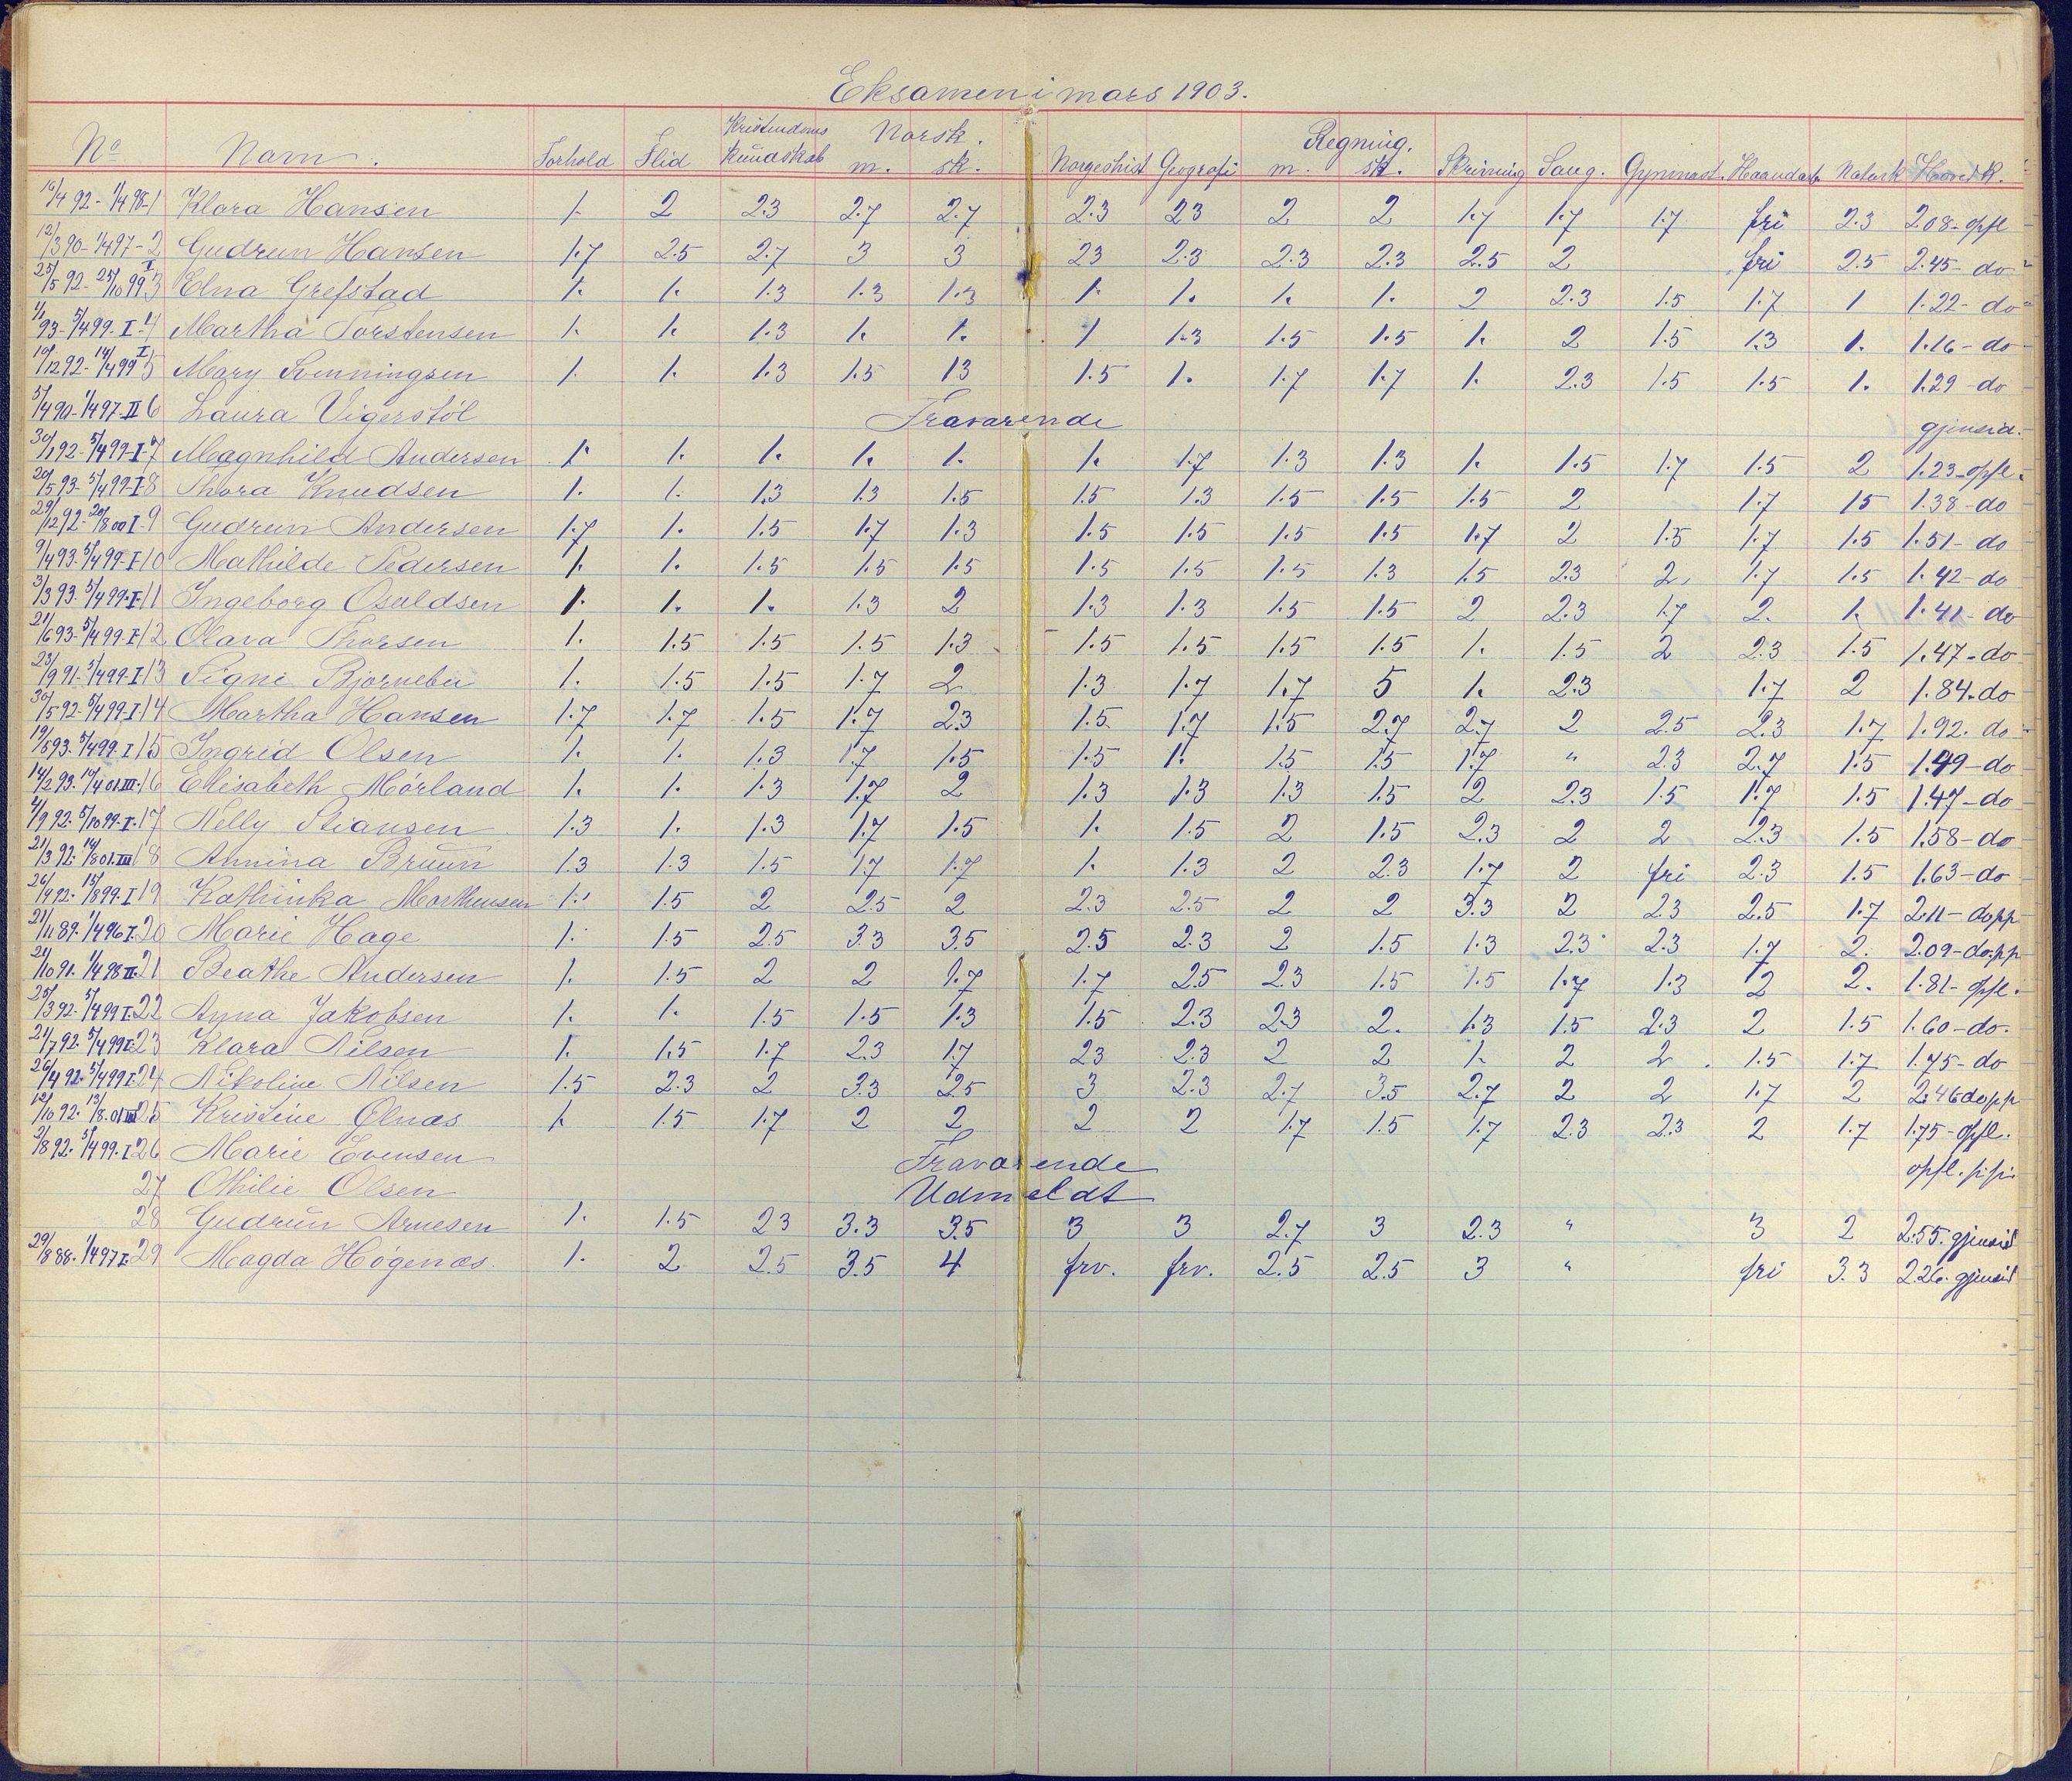 Eksamen i mars 1903.
No Navn. Forhold Flid Kristendoms kundskab Norsk. m. sk. Norgeshist Geografi Regning. m. sk. Skrivning Sang. Gymnast. Haandarb. Naturk Hoved K.
16/4 92 - 1/4 98 - 1 Klara Hansen 1. 2 2.3 2.7 2.7 2.3 2.3 2 2 1.7 1.7 1.7 fri 2.3 2.08 - opfl
12/3 90 - 1/4 97 - 2 Gudrun Hansen 1.7 2.5 2.7 3 3 2.3 2.3 2.3 2.3 2.5 2 fri 2.5 2.45 - do
25/5 92 - 25/10 99 I 3 Elna Grefstad 1. 1. 1.3 1.3 1.3 1. 1. 1. 1. 2 2.3 1.5 1.7 1 1.22 - do
93 - 5/4 99 - I - 4 Martha Torstensen 1. 1. 1.3 1. 1. 1 1.3 1.5 1.5 1. 2 1.5 1.3 1. 1.16 - do
10/12 92 - 14/4 99 I 5 Mary Svenningsen 1. 1. 1.3 1.5 1.3 1.5 1. 1.7 1.7 1. 2.3 1.5 1.5 1. 1.29 - do
5/4 90 - 1/4 97 - II 6 Laura Vigerstøl Fraværende gjensid.
30/1 92 - 5/4 99 - I - 7 Magnhild Andersen 1. 1. 1. 1. 1. 1. 1.7 1.3 1.3 1. 1.5 1.7 1.5 2 1.23 - opfl.
20/5 93 - 5/4 99 - I 8 Thora Knudsen 1. 1. 1.3 1.3 1.5 1.5 1.3 1.5 1.5 1.5 2 1.7 1.5 1.38 - do
29/12 92 - 20/8 00 I - 9 Gudrun Andersen 1.7 1. 1.5 1.7 1.3 1.5 1.5 1.5 1.5 1.7 2 1.5 1.7 1.5 1.51 - do
9/4 93 - 5/4 99 - I - 10 Mathilde Pedersen 1. 1. 1.5 1.5 1.5 1.5 1.5 1.5 1.3 1.5 2.3 2, 1.7 1.5 1.42 - do
3/3 93 - 5/4 99 - I - 11 Ingeborg Osuldsen 1. 1. 1. 1.3 2 1.3 1.3 1.5 1.5 2 2.3 1.7 2. 1. 1.41 - do
21/6 93 - 5/4 99 - I - 12 Olava Thorsen 1. 1.5 1.5 1.5 1.3 1.5 1.5 1.5 1.5 1. 1.5 2 2.3 1.5 1.47 - do
23/9 91 - 5/4 99 - I 13 Signe Bjørnebu 1. 1.5 1.5 1.7 2 1.3 1.7 1.7 5 1. 2.3 1.7 2 1.84 - do
30/5 92 - 5/4 99 - I 14 Martha Hansen 1.7 1.7 1.5 1.7 2.3 1.5 1.7 1.5 2.7 2.7 2 2.5 2.3 1.7 1.92. do
19/8 93 - 5/4 99 - I 15 Ingrid Olsen 1. 1. 1.3 1.7 1.5 1.5 1. 1.5 1.5 1.7 " 2.3 2.7 1.5 1.49 - do
14/2 93. 10/4 01. III - 16 Elisabeth Mørland 1. 1. 1.3 1.7 2 1.3 1.3 1.3 1.5 2 2.3 1.5 1.7 1.5 1.47 - do
4/9 92. 5/10 99 - I. 17 Nelly Stiansen 1.3 1. 1.3 1.7 1.5 1. 1.5 2 1.5 2.3 2 2 2.3 1.5 1.58 - do
21/3 92. 14/8 01. III 18 Annina Bruun 1.3 1.3 1.5 1.7 1.7 1. 1.3 2 2.3 1.7 2 fri 2.3 1.5 1.63 - do
26/4 92. 15/8 99. I 19 Kathinka Morthensen 1. 1.5 2 2.5 2 2.3 2.5 2 2 3.3 2 2.3 2.5 1.7 2.11 - do pp
21/11 89. 1/4 96 I. 20 Marie Hage 1. 1.5 2.5 3.3 3.5 2.5 2.3 2 1.5 1.3 2.3 2.3 1.7 2. 2.09 - do. pp
21/10 91. 1/4 98 II. 21 Beathe Andersen 1. 1.5 2 2 1.7 1.7 2.5 2.3 1.5 1.5 1.7 1.3 2 2. 1.81 - opfl.
25/3 92. 5/4 99 I. 22 Anna Jakobsen 1. 1. 1.5 1.5 1.3 1.5 2.3 2.3 2. 1.3 1.5 2.3 2 1.5 1.60 - do.
21/7 92. 5/4 99 I. 23 Klara Nilsen 1. 1.5 1.7 2.3 1.7 2.3 2.3 2 2 1. 2 2 1.5 1.7 1.75 - do
26/4 92. 5/4 99 I. 24 Nikoline Nilsen 1.5 2.3 2 3.3 2.5 3 2.3 2.7 3.5 2.7 2 2 1.7 2 2.46 do pp
12/10 92. 13/8. 01 III 25 Kristine Ølnæs 1. 1.5 1.7 2 2 2 2 1.7 1.5 1.7 2.3 2.3 2 1.7 1.75 - opfl.
2/8 92. 5/4 99. I. 26 Marie Evensen Fraværende opfl. p.p.
27 Othilie Olsen Udmeldt
28 Gudrun Arnesen 1. 1.5 2.3 3.3 3.5 3 3 2.7 3 2.3 " 3 2 2.55. gjensid
29/8 88. 1/4 97 I. 29 Magda Høgenæs. 1. 2 2.5 3.5 4 frv. frv. 2.5 2.5 3 " fri 3.3 2.26. gjensid